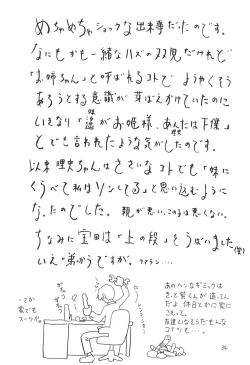 めちゃめちゃショックな出来事だったのです。
なにもかも一緒なハズの双児だけれど
「お姉ちゃん」と呼ばれるコトで ようやくそう
あろうとする意識が 芽ばえかけていたのに
いきなり「が お姫様、あんたは下僕」
とでも言われたような気がしたのです。
以来 理史ちゃんはささいなコトでも「妹に
くらべて私はソンしてる」と思い込むように
なったのでした。 親が悪い。この子は悪くない。
ちなみに宝田は「上の段」をうばいました(笑)
いえ 弟がうですが。
あのヘンなギミックは
きっと賢くんが造ってん
だよ、休日とかに家に
こもって。
お違いなそうだもんな
コイツも…。
がちょ
がちょ
36